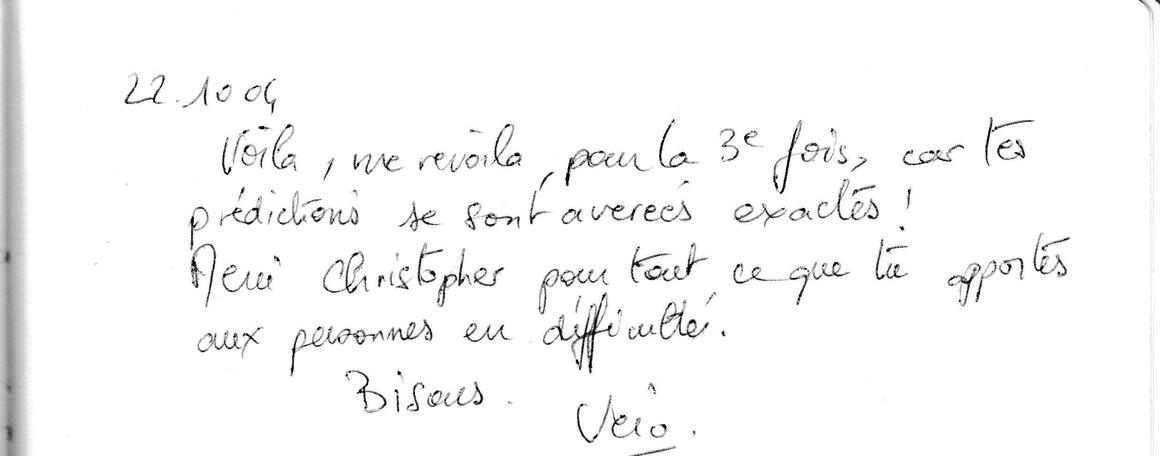 22.10 04
Voila, me revoila, pour la 3e fois, car tes
prédictions se sont averées exactes !
Merci Christopher pour tout ce que tu apportes
aux personnes en difficulté.
Bisous.
Véro.